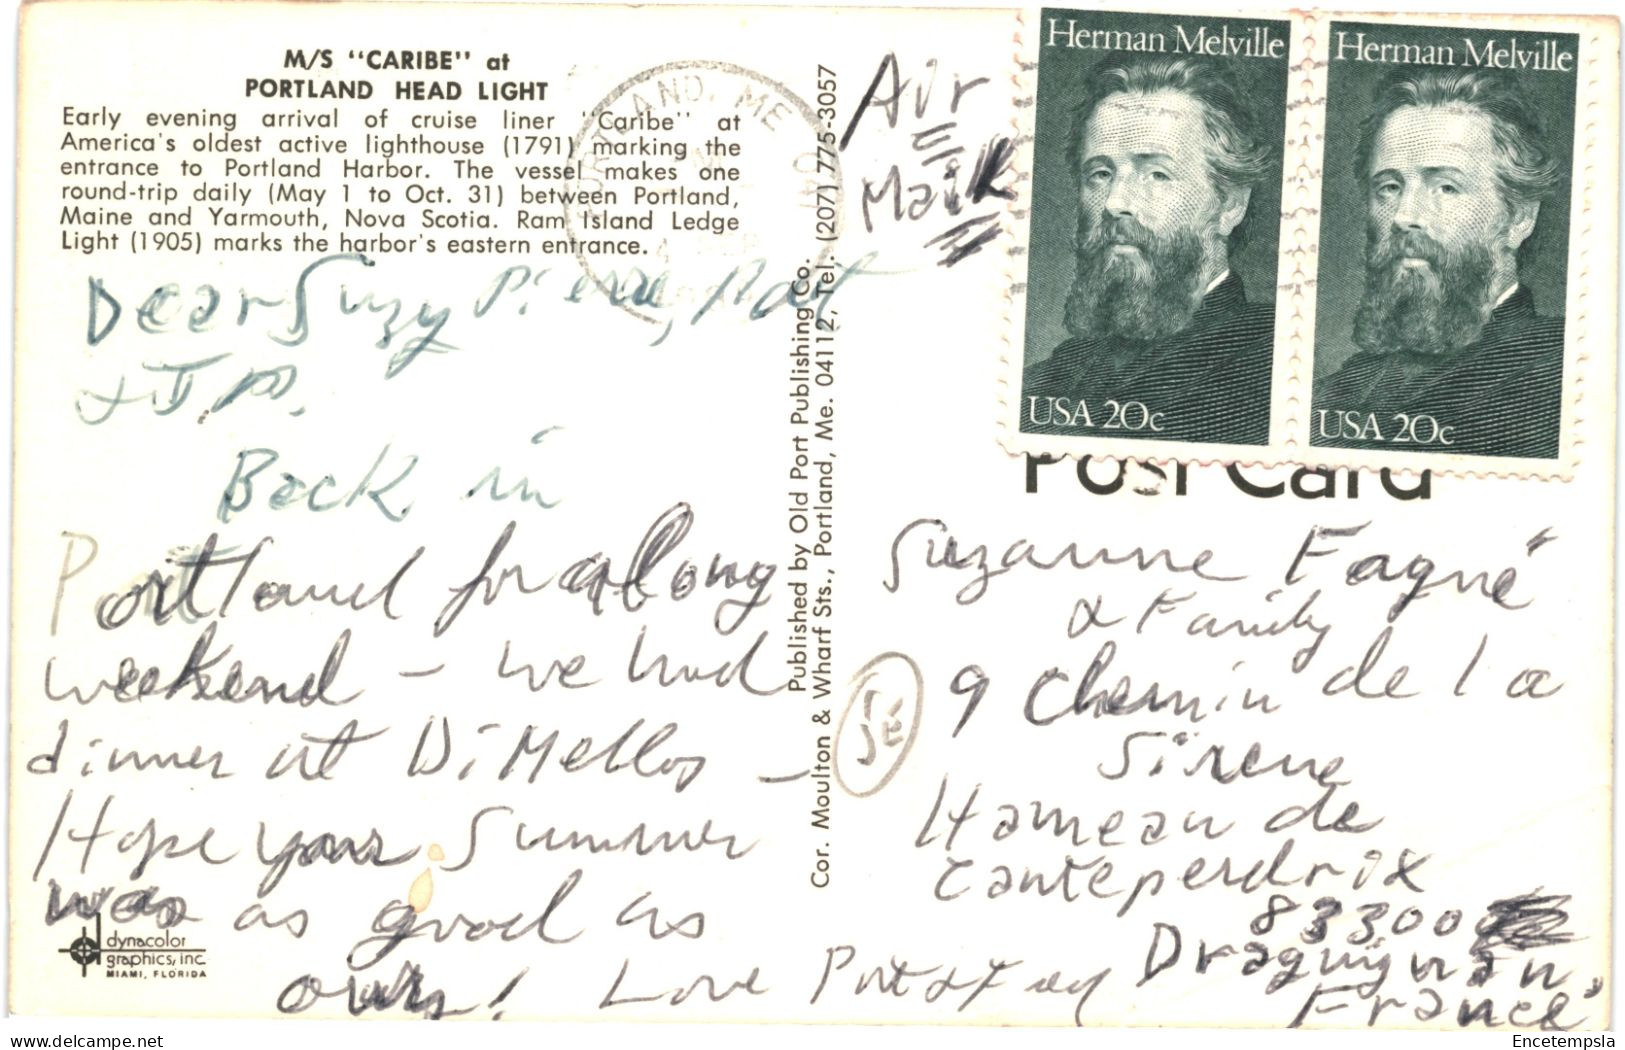 M/S "CARIBE" at
PORTLAND HEAD LIGHT
Early evening arrival of cruise liner "Caribe" at
America's oldest active lighthouse (1791) marking the
entrance to Portland Harbor. The vessel makes one
round-trip daily (May 1 to Oct. 31) between Portland,
Maine and Yarmouth, Nova Scotia. Ram Island Ledge
Light (1905) marks the harbor's eastern entrance.
PORTLAND, ME
Dear Suzy Pierre, Pat
& J.P.
Back in
Portland for a long
weekend - we had
dinner at DiMellos -
Hope your Summer
was as good as
ours! Love
dynacolor
graphics, inc.
MIAMI, FLORIDA
Published by Old Port Publishing Co.
Cor. Moulton & Wharf Sts., Portland, Me. 04112, Tel. (207) 775-3057
Air
Mail
Herman Melville
USA 20c
Herman Melville
USA 20c
Post Card
Suzanne Fagné
& Family
9 Chemin de la
Sirene
Hameau de
Canteperdrix
83300
Draguignan,
France
Encetempsla